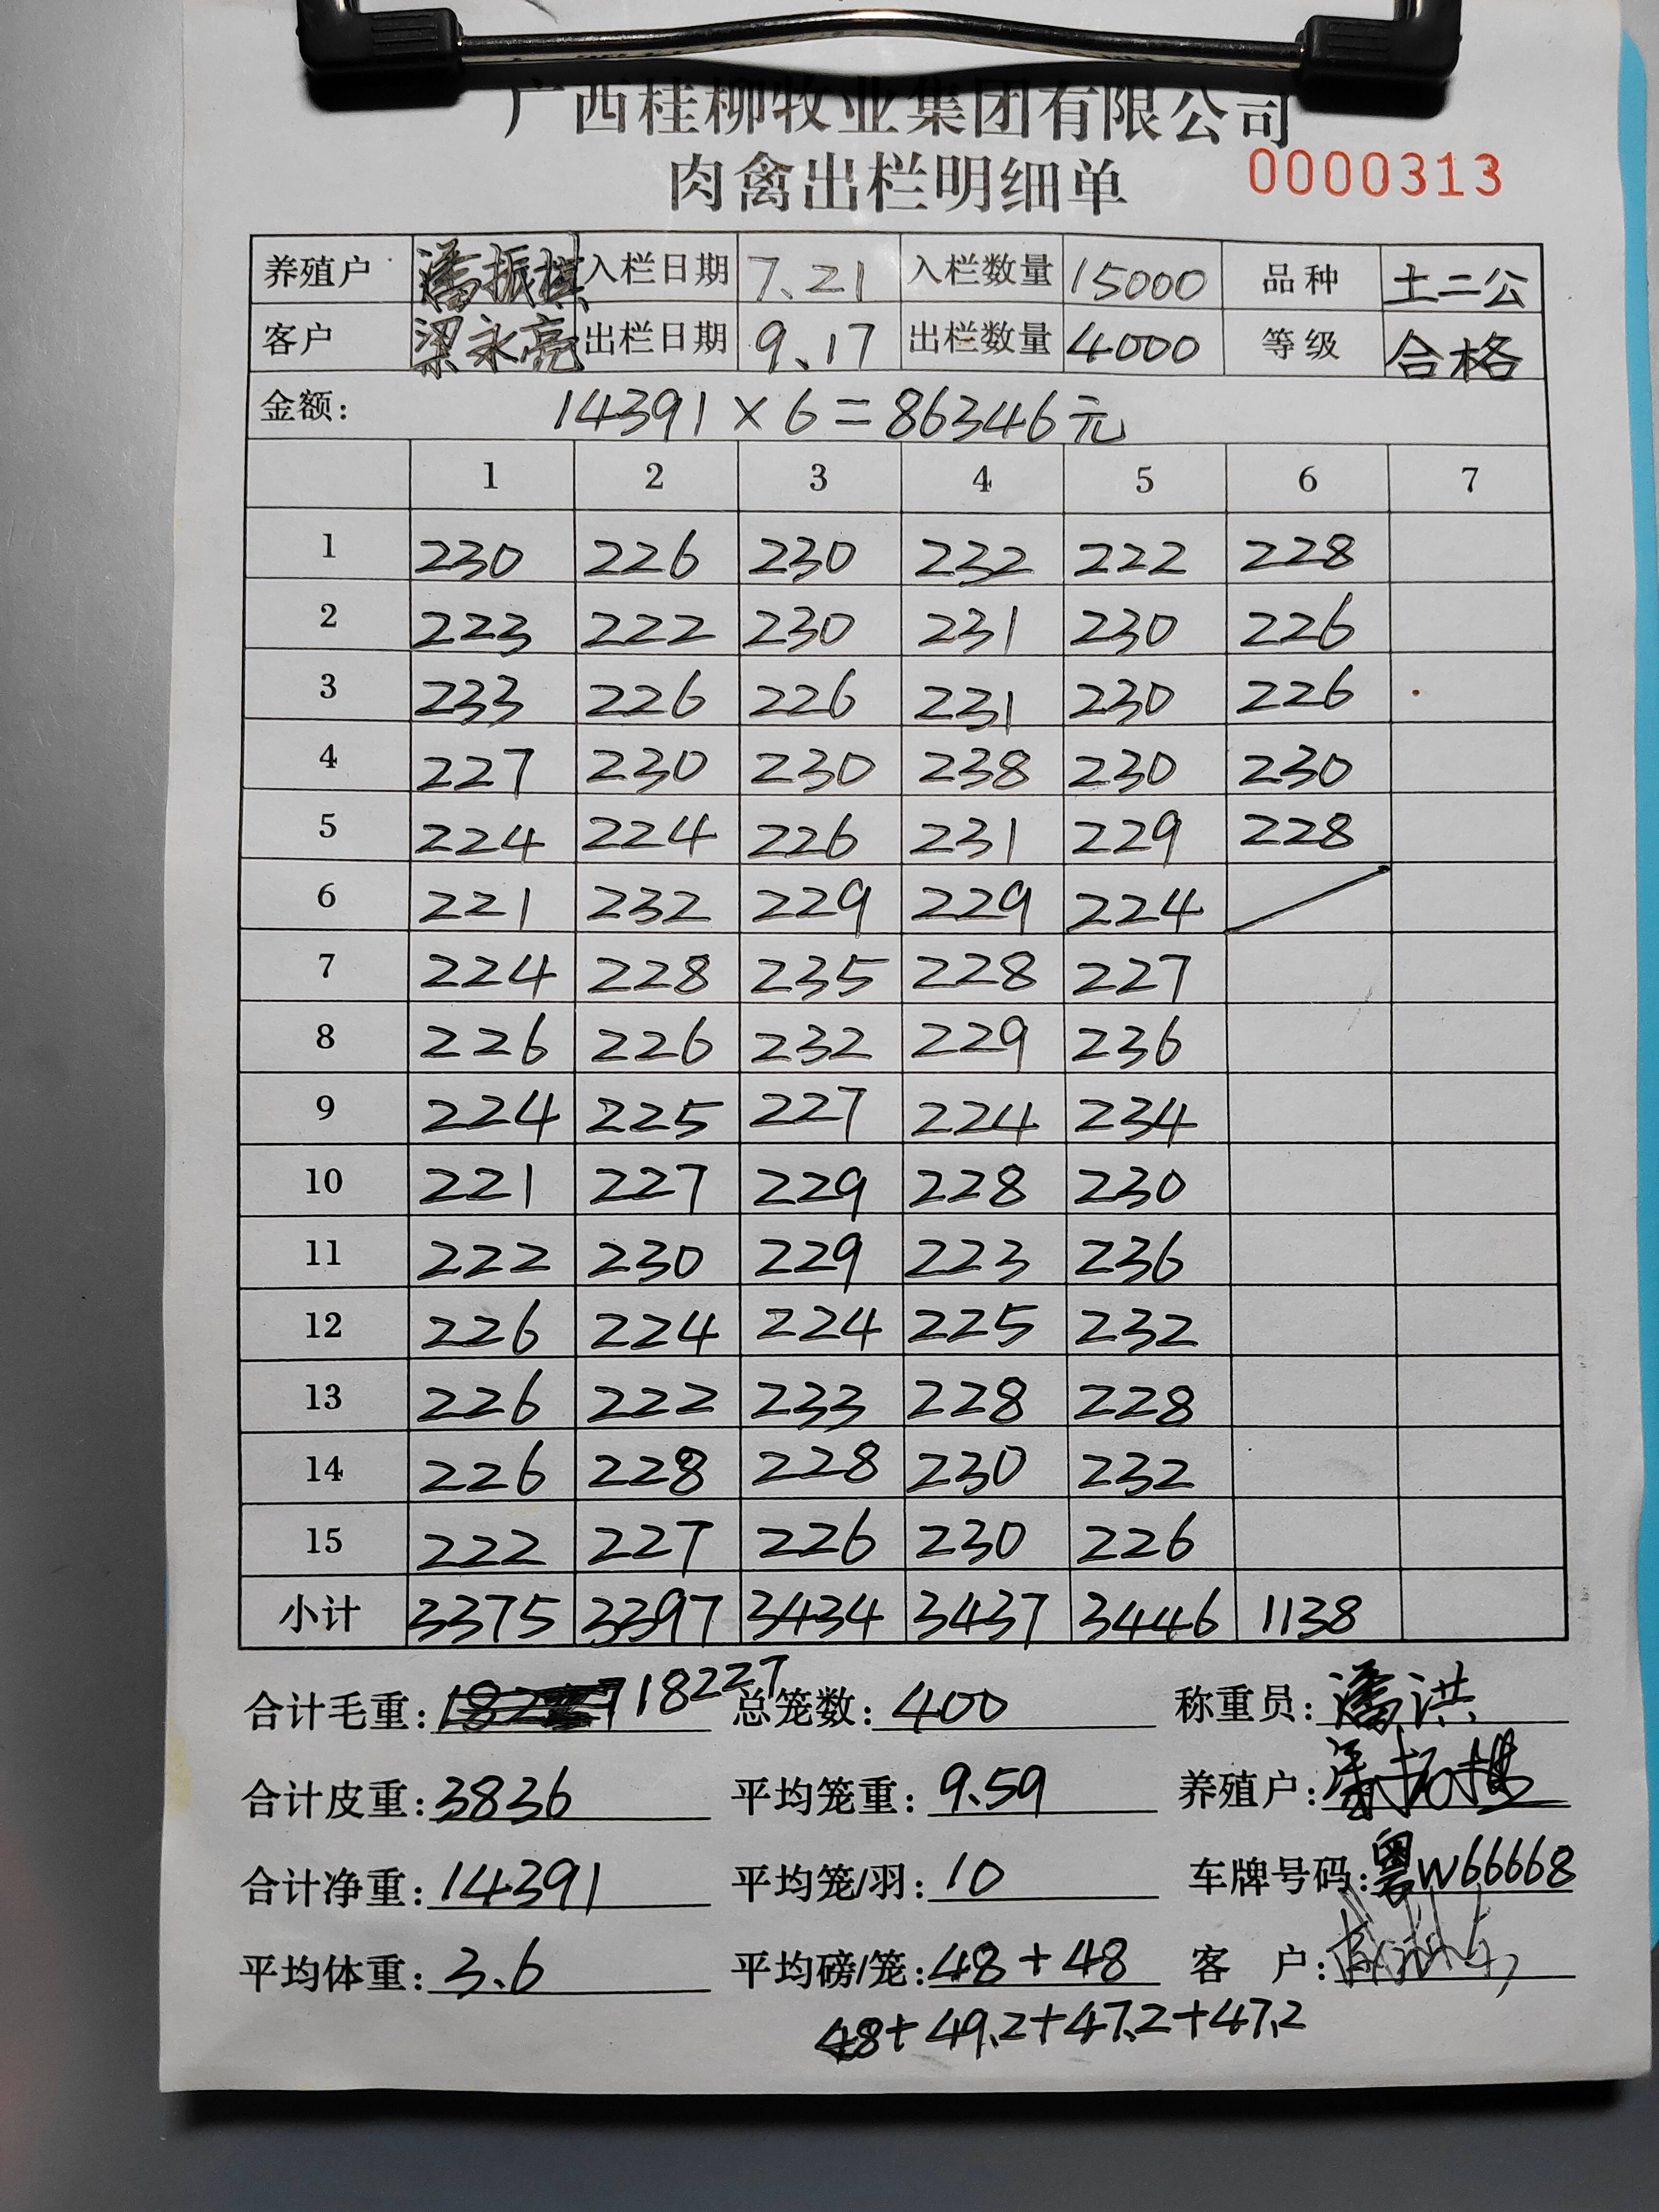 广西桂柳牧业集团有限公司
肉禽出栏明细单 0000313
养殖户 潘振棋 入栏日期 7.21 入栏数量 15000 品种 土二公
客户 梁永亮 出栏日期 9.17 出栏数量 4000 等级 合格
金额: 14391×6=86346元
1 2 3 4 5 6 7
1 230 226 230 232 222 228
2 223 222 230 231 230 226
3 233 226 226 231 230 226
4 227 230 230 238 230 230
5 224 224 226 231 229 228
6 221 232 229 229 224
7 224 228 235 228 227
8 226 226 232 229 236
9 224 225 227 224 234
10 221 227 229 228 230
11 222 230 229 223 236
12 226 224 224 225 232
13 226 222 233 228 228
14 226 228 228 230 232
15 222 227 226 230 226
小计 3375 3397 3434 3437 3446 1138
合计毛重: 18227 总笼数: 400 称重员: 潘洪
合计皮重: 3836 平均笼重: 9.59 养殖户:
合计净重: 14391 平均笼/羽: 10 车牌号码: 粤W66668
平均体重: 3.6 平均磅/笼: 48+48 客 户:
48+49.2+47.2+47.2